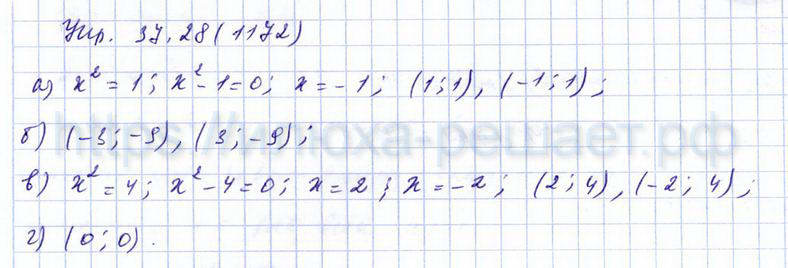 Упр. 37.28 (1172)
а) x² = 1; x² - 1 = 0; x = -1; (1; 1), (-1; 1);
б) (-3; -9), (3; -9);
https://илюха-решает.рф
в) x² = 4; x² - 4 = 0; x = 2; x = -2; (2; 4), (-2; 4);
г) (0; 0).